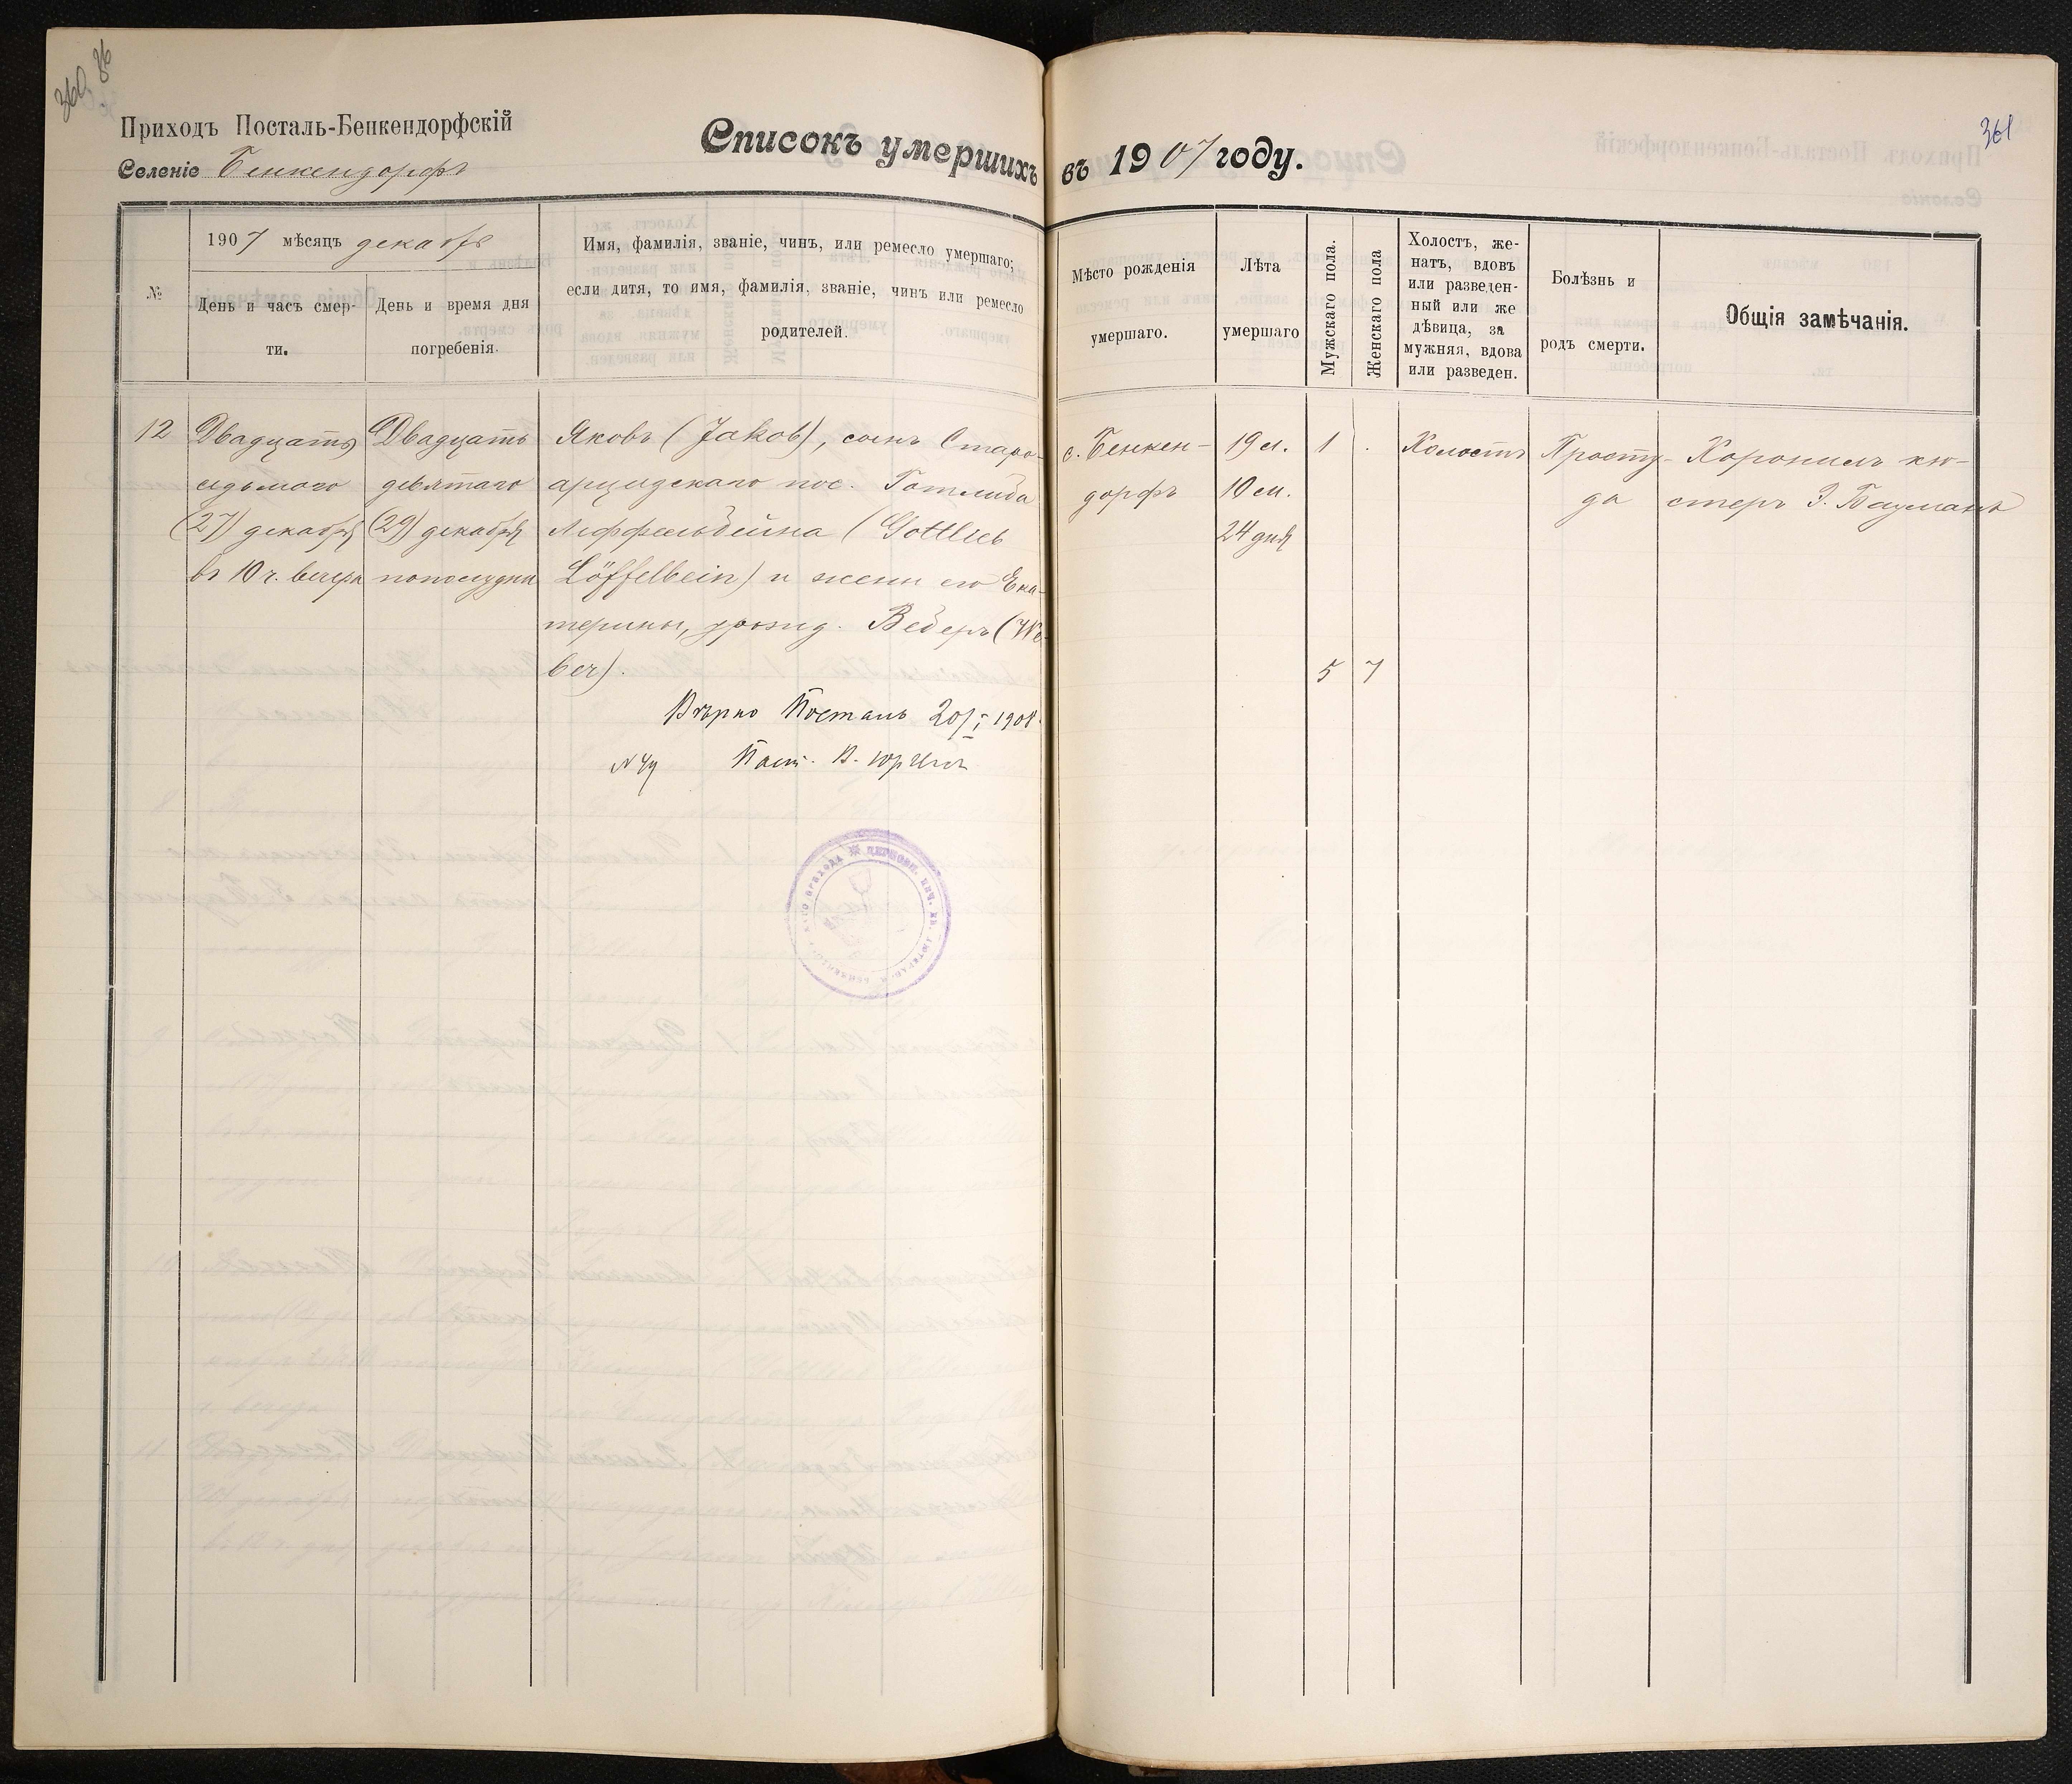 360
86
361
Приходъ Посталь-Бенкендорфскій
Селеніе Бенкендорфъ
Списокъ умершихъ въ 1907 году.
№
1907 мѣсяцъ декабрь
День и часъ смер-
ти.
День и время дня
погребенія.
Имя, фамилія, званіе, чинъ, или ремесло умершаго;
если дитя, то имя, фамилія, званіе, чинъ или ремесло
родителей.
Мѣсто рожденія
умершаго.
Лѣта
умершаго
Мужскаго пола.
Женскаго пола
Холостъ, же-
натъ, вдовъ
или разведен-
ный или же
дѣвица, за
мужняя, вдова
или разведен.
Болѣзнь и
родъ смерти.
Общія замѣчанія.
12
Двадцать
седьмого
(27) декабря
въ 10 ч. вечера
Двадцать
девятаго
(29) декабря
пополудни
Яковъ (Jakob), сынъ Старо-
арцизскаго пос. Готлиба
Леффельбейна (Gottlieb
Löffelbein) и жены его Ека-
терины, урожд. Веберъ (We-
ber).
с. Бенкен-
дорфъ
19 л.
10 м.
24 дня
1
Холостъ
Просту-
да
Хоронилъ кю-
стеръ З. Бауманъ
5 7
Вѣрно Посталь 20/I 1908.
Паст.